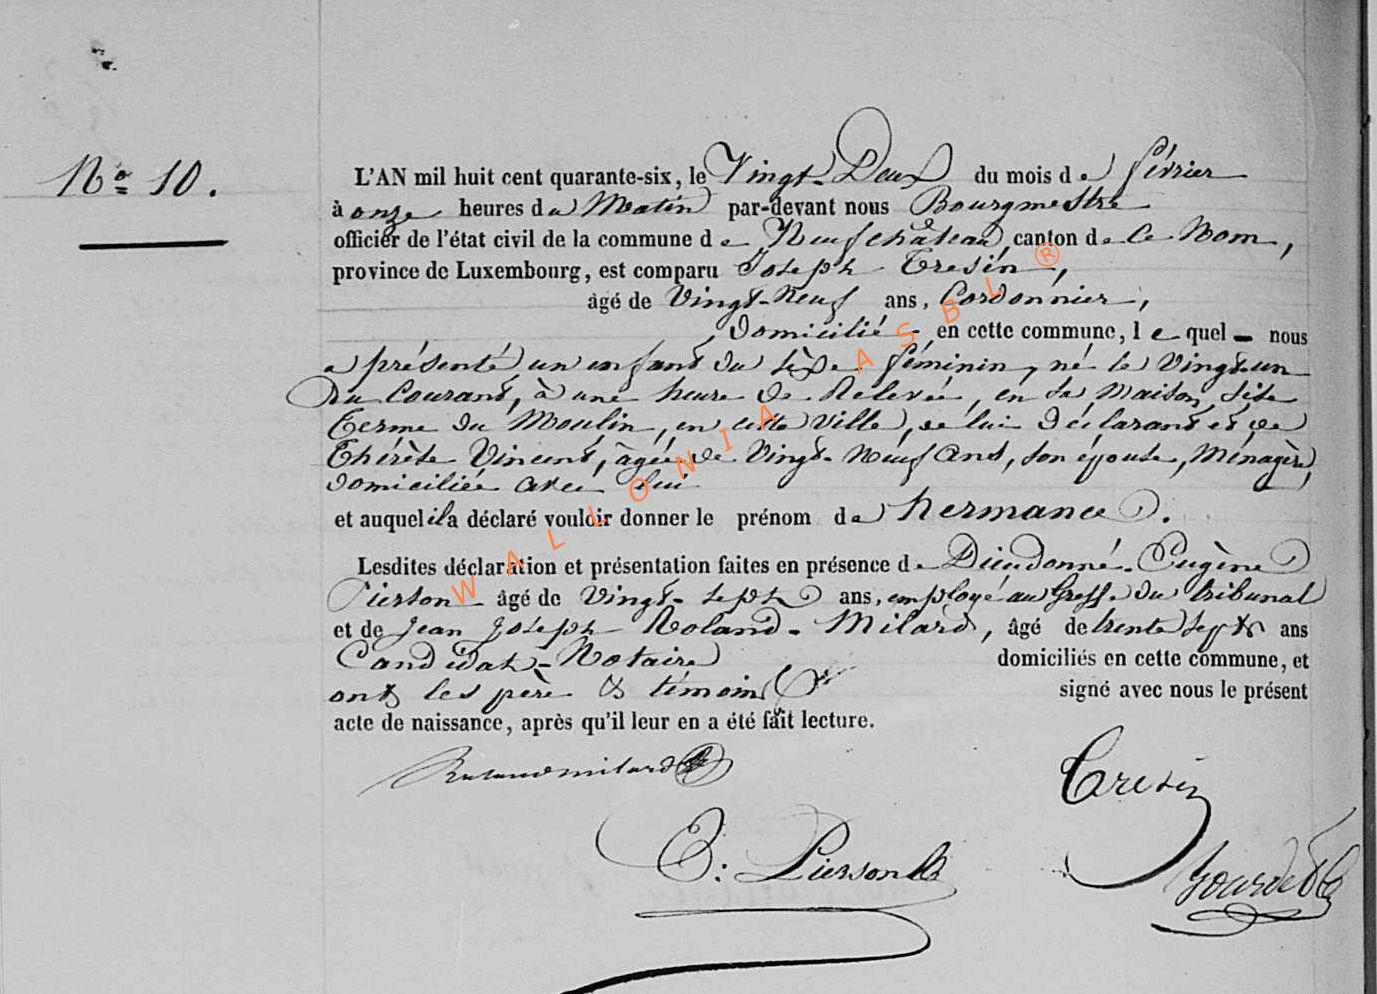 No 10.
L'AN mil huit cent quarante-six, le Vingt-Deux du mois de février
à onze heures du Matin par-devant nous Bourgmestre
officier de l'état civil de la commune de Neufchâteau, canton de Ce Nom,
province de Luxembourg, est comparu Joseph Tresin,
âgé de Vingt-Neuf ans, Cordonnier,
domicilié en cette commune, lequel nous
a présenté un enfant du sèxe féminin, né le Vingt-un
Du Courant, à une heure de Relevée, en sa Maison, sise
Terme du Moulin, en cette Ville, de lui déclarant et de
Thérèse Vincent, âgée de Vingt-Neuf Ans, son épouse, Ménagère,
domiciliée avec lui
et auquel il a déclaré vouloir donner le prénom de hermance.
Lesdites déclaration et présentation faites en présence de Dieudonné-Eugène
Pierson âgé de Vingt-sept ans, employé au Greffe du tribunal
et de Jean Joseph Roland-Milard, âgé de trente sept ans
Candidat-Notaire domiciliés en cette commune, et
ont les père & témoins signé avec nous le présent
acte de naissance, après qu'il leur en a été fait lecture.
Rolandmilard
Tresin
E: Pierson
WALLONIA ASBL ®